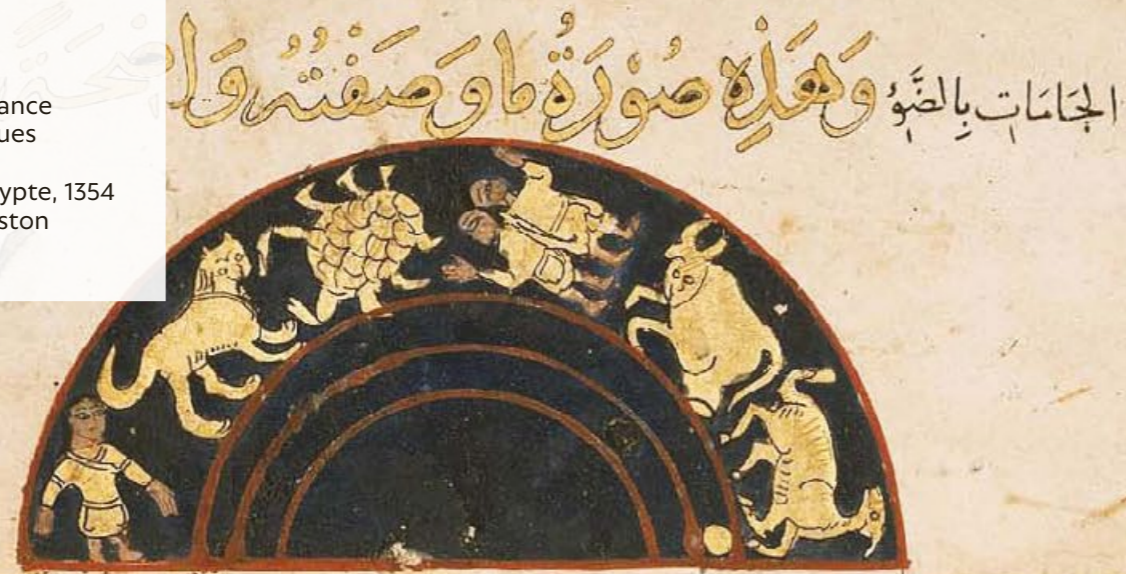 ance
ues
ypte, 1354
ston
الجَامَات بِالضَّوْءِ وَهَذِهِ صُوْرَةُ مَا وَصَفْتُهُ وَا